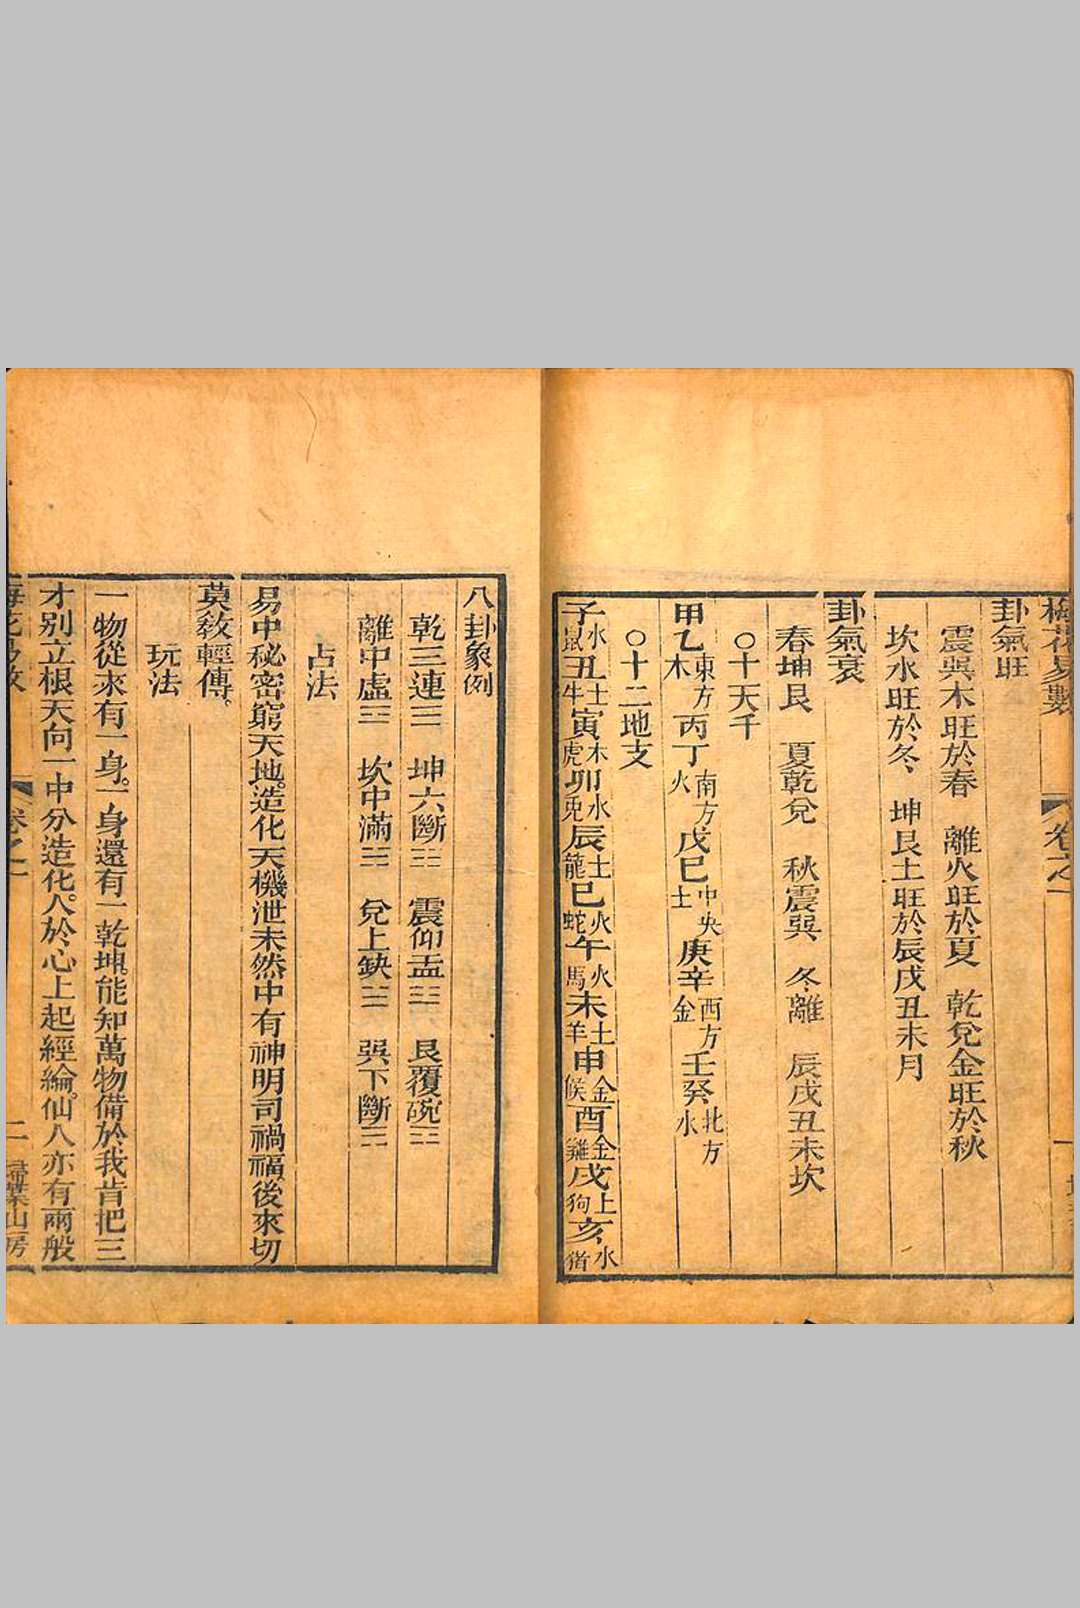 梅花易數 卷之一
卦氣旺
震巽木旺於春 離火旺於夏 乾兌金旺於秋
坎水旺於冬 坤艮土旺於辰戌丑未月
卦氣衰
春坤艮 夏乾兌 秋震巽 冬離 辰戌丑未坎
○十天干
甲乙東方木丙丁南方火戊巳中央土庚辛西方金壬癸北方水
○十二地支
子水鼠丑土牛寅木虎卯水兎辰土龍巳火蛇午火馬未土羊申金候酉金雞戌上狗亥水猪
八卦象例
乾三連☰ 坤六斷☷ 震仰盂☳ 艮覆碗☶
離中虛☲ 坎中滿☵ 兌上缺☱ 巽下斷☴
占法
易中秘密窮天地。造化天機泄未然中有神明司禍福後來切
莫敎輕傳。
玩法
一物從來有一身。一身還有一乾坤。能知萬物備於我肯把三
才別立根天向一中分造化。人於心上起經綸。仙人亦有兩般
卷之一 二 掃葉山房